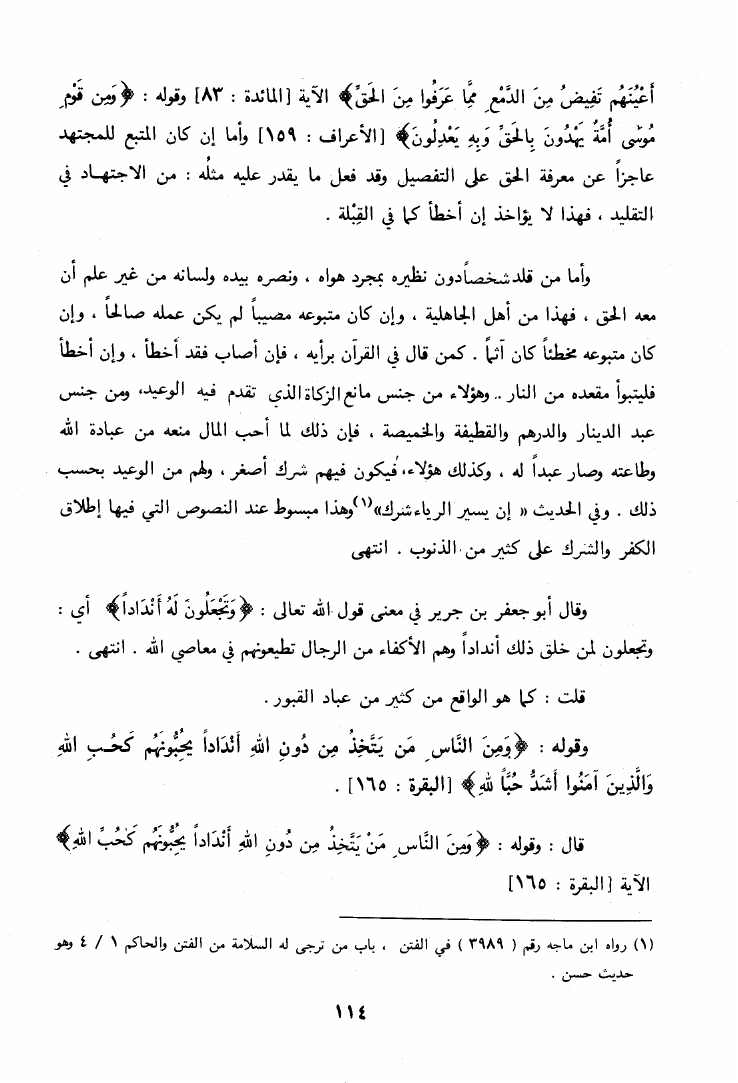 أَعْيُنَهُم تَفِيضُ مِنَ الدَّمْعِ مِمَّا عَرَفُوا مِنَ الحَقِّ﴾ الآية [المائدة : ٨٣] وقوله : ﴿وَمِن قَوْمِ
مُوسَى أُمَّةٌ يَهْدُونَ بِالحَقِّ وَبِهِ يَعْدِلُونَ﴾ [الأعراف : ١٥٩] وأما إن كان المتبع للمجتهد
عاجزاً عن معرفة الحق على التفصيل وقد فعل ما يقدر عليه مثلُه : من الاجتهاد في
التقليد ، فهذا لا يؤاخذ إن أخطأ كما في القِبْلة .
وأما من قلد شخصاً دون نظيره بمجرد هواه ، ونصره بيده ولسانه من غير علم أن
معه الحق ، فهذا من أهل الجاهلية ، وإن كان متبوعه مصيباً لم يكن عمله صالحاً ، وإن
كان متبوعه مخطئاً كان آثماً . كمن قال في القرآن برأيه ، فإن أصاب فقد أخطأ ، وإن أخطأ
فليتبوأ مقعده من النار .. وهؤلاء من جنس مانع الزكاة الذي تقدم فيه الوعيد، ومن جنس
عبد الدينار والدرهم والقطيفة والخميصة ، فإن ذلك لما أحب المال منعه من عبادة الله
وطاعته وصار عبداً له ، وكذلك هؤلاء، فيكون فيهم شرك أصغر ، ولهم من الوعيد بحسب
ذلك . وفي الحديث « إن يسير الرياء شرك»(١) وهذا مبسوط عند النصوص التي فيها إطلاق
الكفر والشرك على كثير من الذنوب . انتهى
وقال أبو جعفر بن جرير في معنى قول الله تعالى : ﴿وَتَجْعَلُونَ لَهُ أَنْدَاداً﴾ أي :
وتجعلون لمن خلق ذلك أنداداً وهم الأكفاء من الرجال تطيعونهم في معاصي الله . انتهى .
قلت : كما هو الواقع من كثير من عباد القبور .
وقوله : ﴿وَمِنَ النَّاسِ مَن يَتَّخِذُ مِن دُونِ اللهِ أَنْدَاداً يُحِبُّونَهُم كَحُبِ اللهِ
وَالَّذِينَ آمَنُوا أَشَدُّ حُبًّا للهِ﴾ [البقرة : ١٦٥] .
قال : وقوله : ﴿وَمِنَ النَّاسِ مَنْ يَتَّخِذُ مِن دُونِ اللهِ أَنْدَاداً يُحِبُّونَهُم كَحُبِّ اللهِ﴾
الآية [البقرة : ١٦٥]
(١) رواه ابن ماجه رقم ( ٣٩٨٩ ) في الفتن ، باب من ترجى له السلامة من الفتن والحاكم ١ / ٤ وهو
حديث حسن .
١١٤